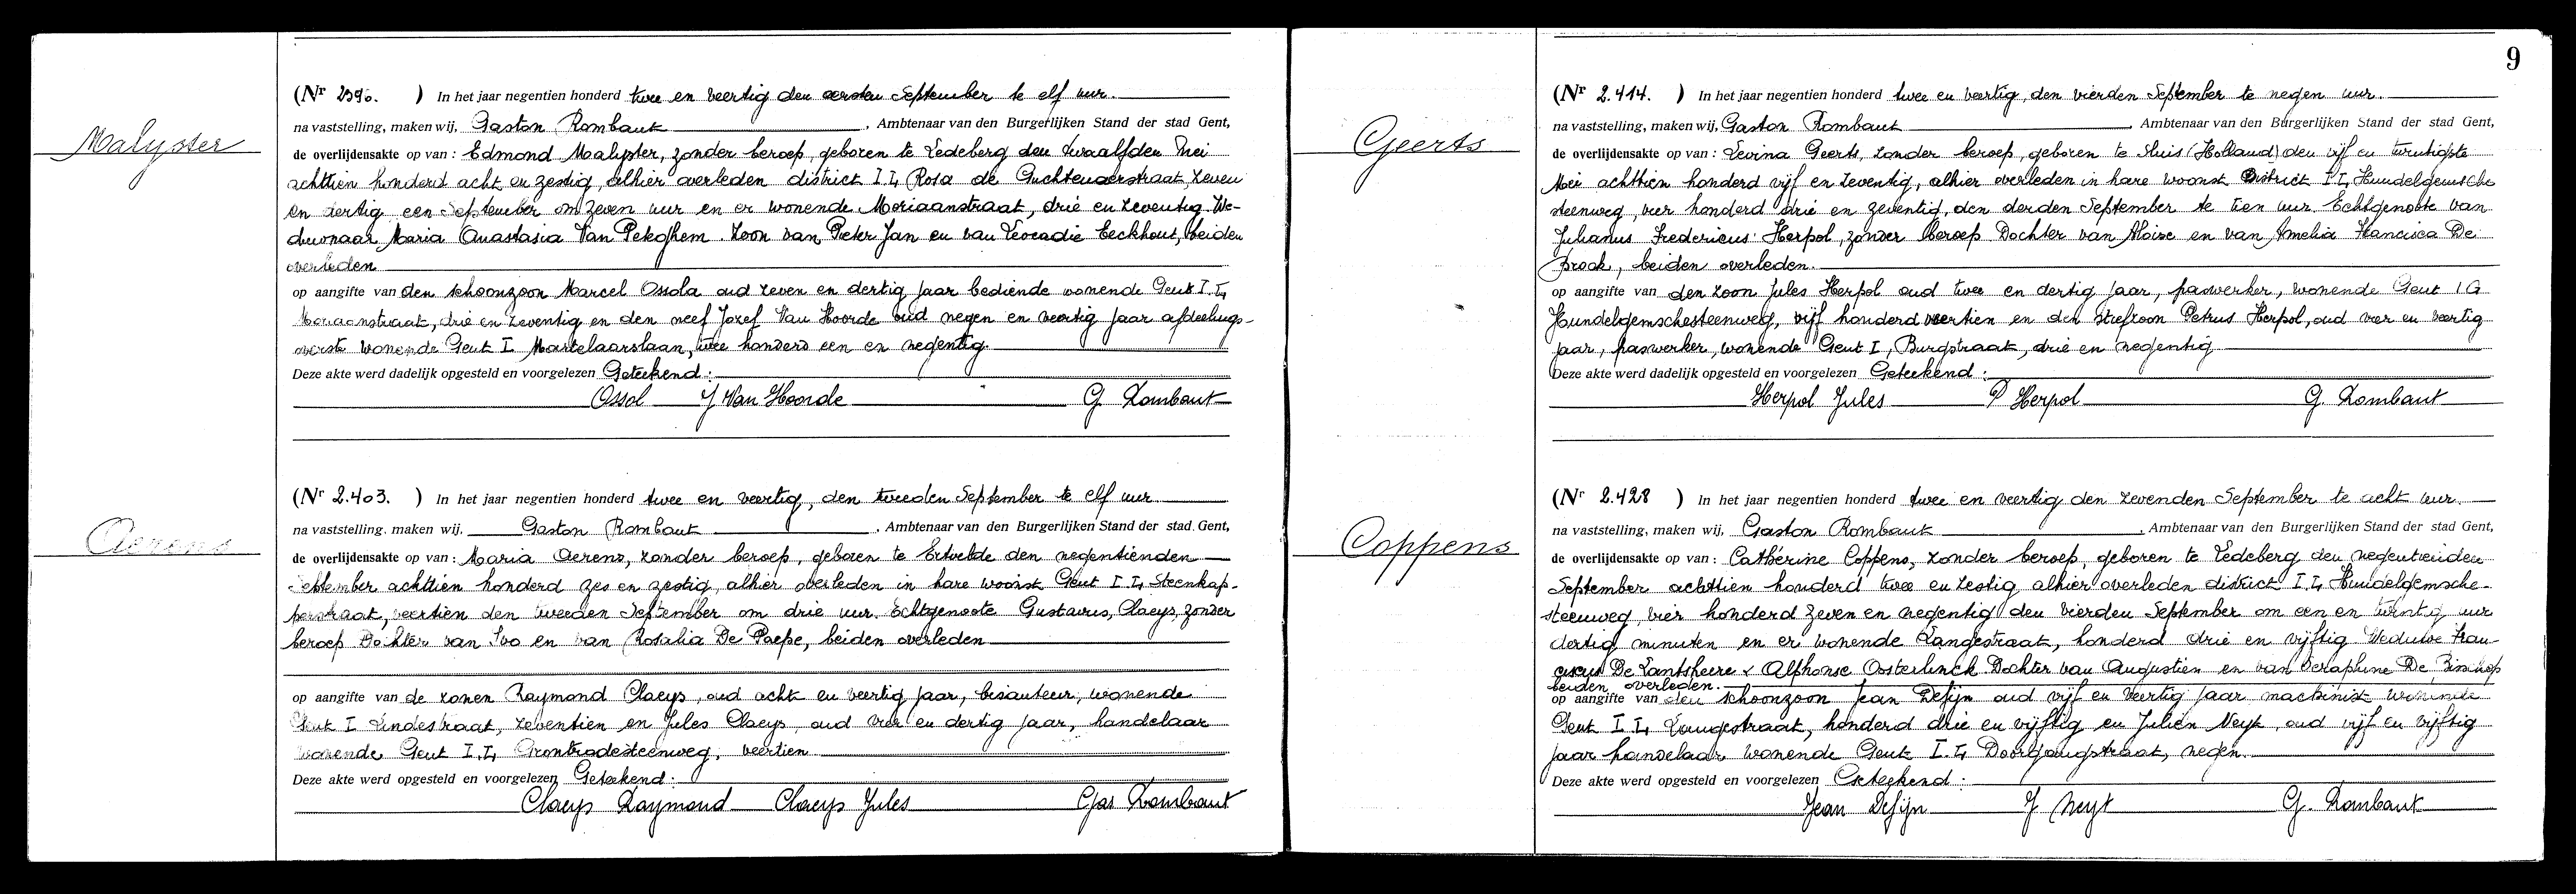 Malyster
(Nr 2396. ) In het jaar negentien honderd twee en veertig den eersten September te elf uur.
na vaststelling, maken wij, Gaston Rombaut, Ambtenaar van den Burgerlijken Stand der stad Gent,
de overlijdensakte op van : Edmond Malyster, zonder beroep, geboren te Ledeberg den twaalfden Mei
achttien honderd acht en zestig, alhier overleden district I.I, Rosa de Guchtenaerstraat, zeven
en dertig een September om zeven uur en er wonende Moriaanstraat, drie en zeventig. We-
duwnaar Maria Anastasia Van Peteghem. Zoon van Pieter Jan en van Leocadie Eeckhout, beiden
overleden
op aangifte van den schoonzoon Marcel Ossola oud zeven en dertig jaar bediende wonende Gent I.I,
Moriaanstraat, drie en zeventig en den neef Jozef Van Hoorde oud negen en veertig jaar afdeelings-
overste wonende Gent I Martelaarslaan, twee honderd een en negentig.
Deze akte werd dadelijk opgesteld en voorgelezen Geteekend :
Ossol J Van Hoorde G. Rombaut
Aerens
(Nr 2.403. ) In het jaar negentien honderd twee en veertig, den tweeden September te elf uur
na vaststelling. maken wij, Gaston Rombaut, Ambtenaar van den Burgerlijken Stand der stad Gent,
de overlijdensakte op van : Maria Aerens, zonder beroep, geboren te Ertvelde den negentienden
September achttien honderd zes en zestig, alhier overleden in hare woonst Gent I.I, Steenkap-
perstraat, veertien den tweeden September om drie uur. Echtgenoote Gustavus, Claeys, zonder
beroep Dochter van Ivo en van Rosalia De Paepe, beiden overleden
op aangifte van de zonen Raymond Claeys, oud acht en veertig jaar, bisauteur, wonende
Gent I Lindestraat, zeventien en Jules Claeys, oud vier en dertig jaar, handelaar
wonende Gent I.I, veertien
Deze akte werd opgesteld en voorgelezen Geteekend :
Claeys Raymond Claeys Jules Gas Rombaut
9
Geerts
(Nr 2.414. ) In het jaar negentien honderd twee en veertig, den vierden September te negen uur.
na vaststelling, maken wij, Gaston Rombaut, Ambtenaar van den Burgerlijken Stand der stad Gent,
de overlijdensakte op van : Levina Geerts, zonder beroep, geboren te Sluis (Holland) den vijf en twintigste
Mei achttien honderd vijf en zeventig, alhier overleden in hare woonst District I.I, Hundelgemsche
steenweg, vier honderd drie en zeventig, den derden September te tien uur. Echtgenoote van
Julianus Fredericus Herpol, zonder beroep Dochter van Aloise en van Amelia Francisca De
Brock, beiden overleden.
op aangifte van den zoon Jules Herpol oud twee en dertig jaar, paswerker, wonende Gent I G
Hundelgemschesteenweg, vijf honderd veertien en den stiefzoon Petrus Herpol, oud vier en veertig
jaar, paswerker, wonende Gent I, Burgstraat, drie en negentig
Deze akte werd dadelijk opgesteld en voorgelezen Geteekend :
Herpol Jules P Herpol G. Rombaut
Coppens
(Nr 2.428 ) In het jaar negentien honderd twee en veertig den zevenden September te acht uur.
na vaststelling, maken wij, Gaston Rombaut, Ambtenaar van den Burgerlijken Stand der stad Gent,
de overlijdensakte op van : Cathérine Coppens, zonder beroep, geboren te Ledeberg den negentienden
September achttien honderd twee en zestig alhier overleden district I.I, Hundelgemsche-
steenweg vier honderd zeven en negentig den vierden September om een en twintig uur
dertig minuten en er wonende Langestraat, honderd drie en vijftig Weduwe Fran-
ciscus De Lantsheere & Alphonse Oosterlinck. Dochter van Augustien en van Seraphine De Bisschop
beiden overleden.
op aangifte van den schoonzoon Jean Defijn oud vijf en veertig jaar machinist wonende
Gent I I, Langestraat, honderd drie en vijftig en Julien Neyt, oud vijf en vijftig
jaar handelaar, wonende Gent I.I, Doorgangstraat, negen.
Deze akte werd opgesteld en voorgelezen Geteekend :
Jean Defijn J Neyt G. Rombaut